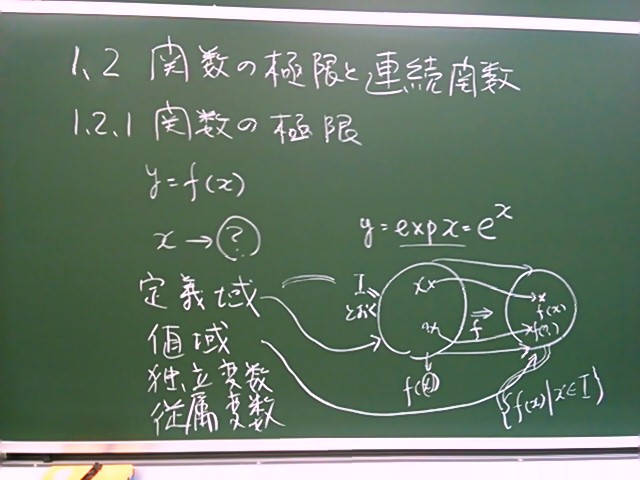 1.2 関数の極限と連続関数
1.2.1 関数の極限
y=f(x)
x→?
y=exp x=e^x
定義域
I とおく
値域
独立変数
従属変数
f
f(x)
{f(x)|x∈I}